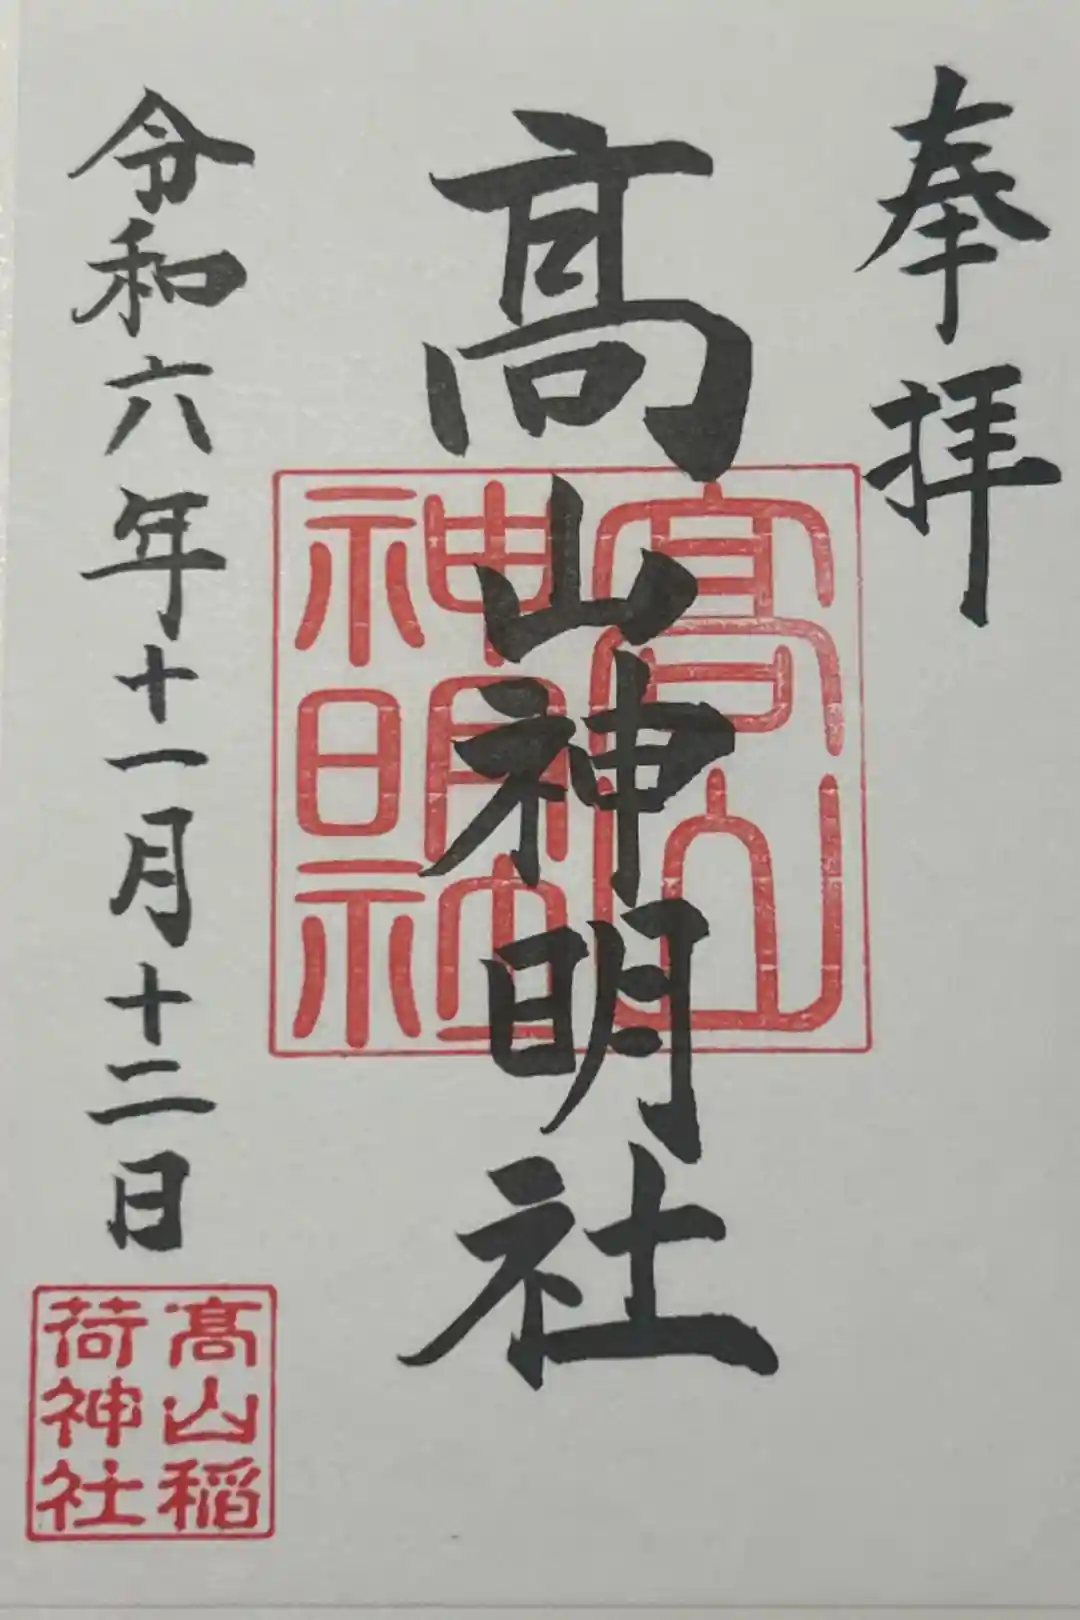 奉拝
髙山神明社
髙山
神明社
令和六年十一月十二日
髙山稲
荷神社